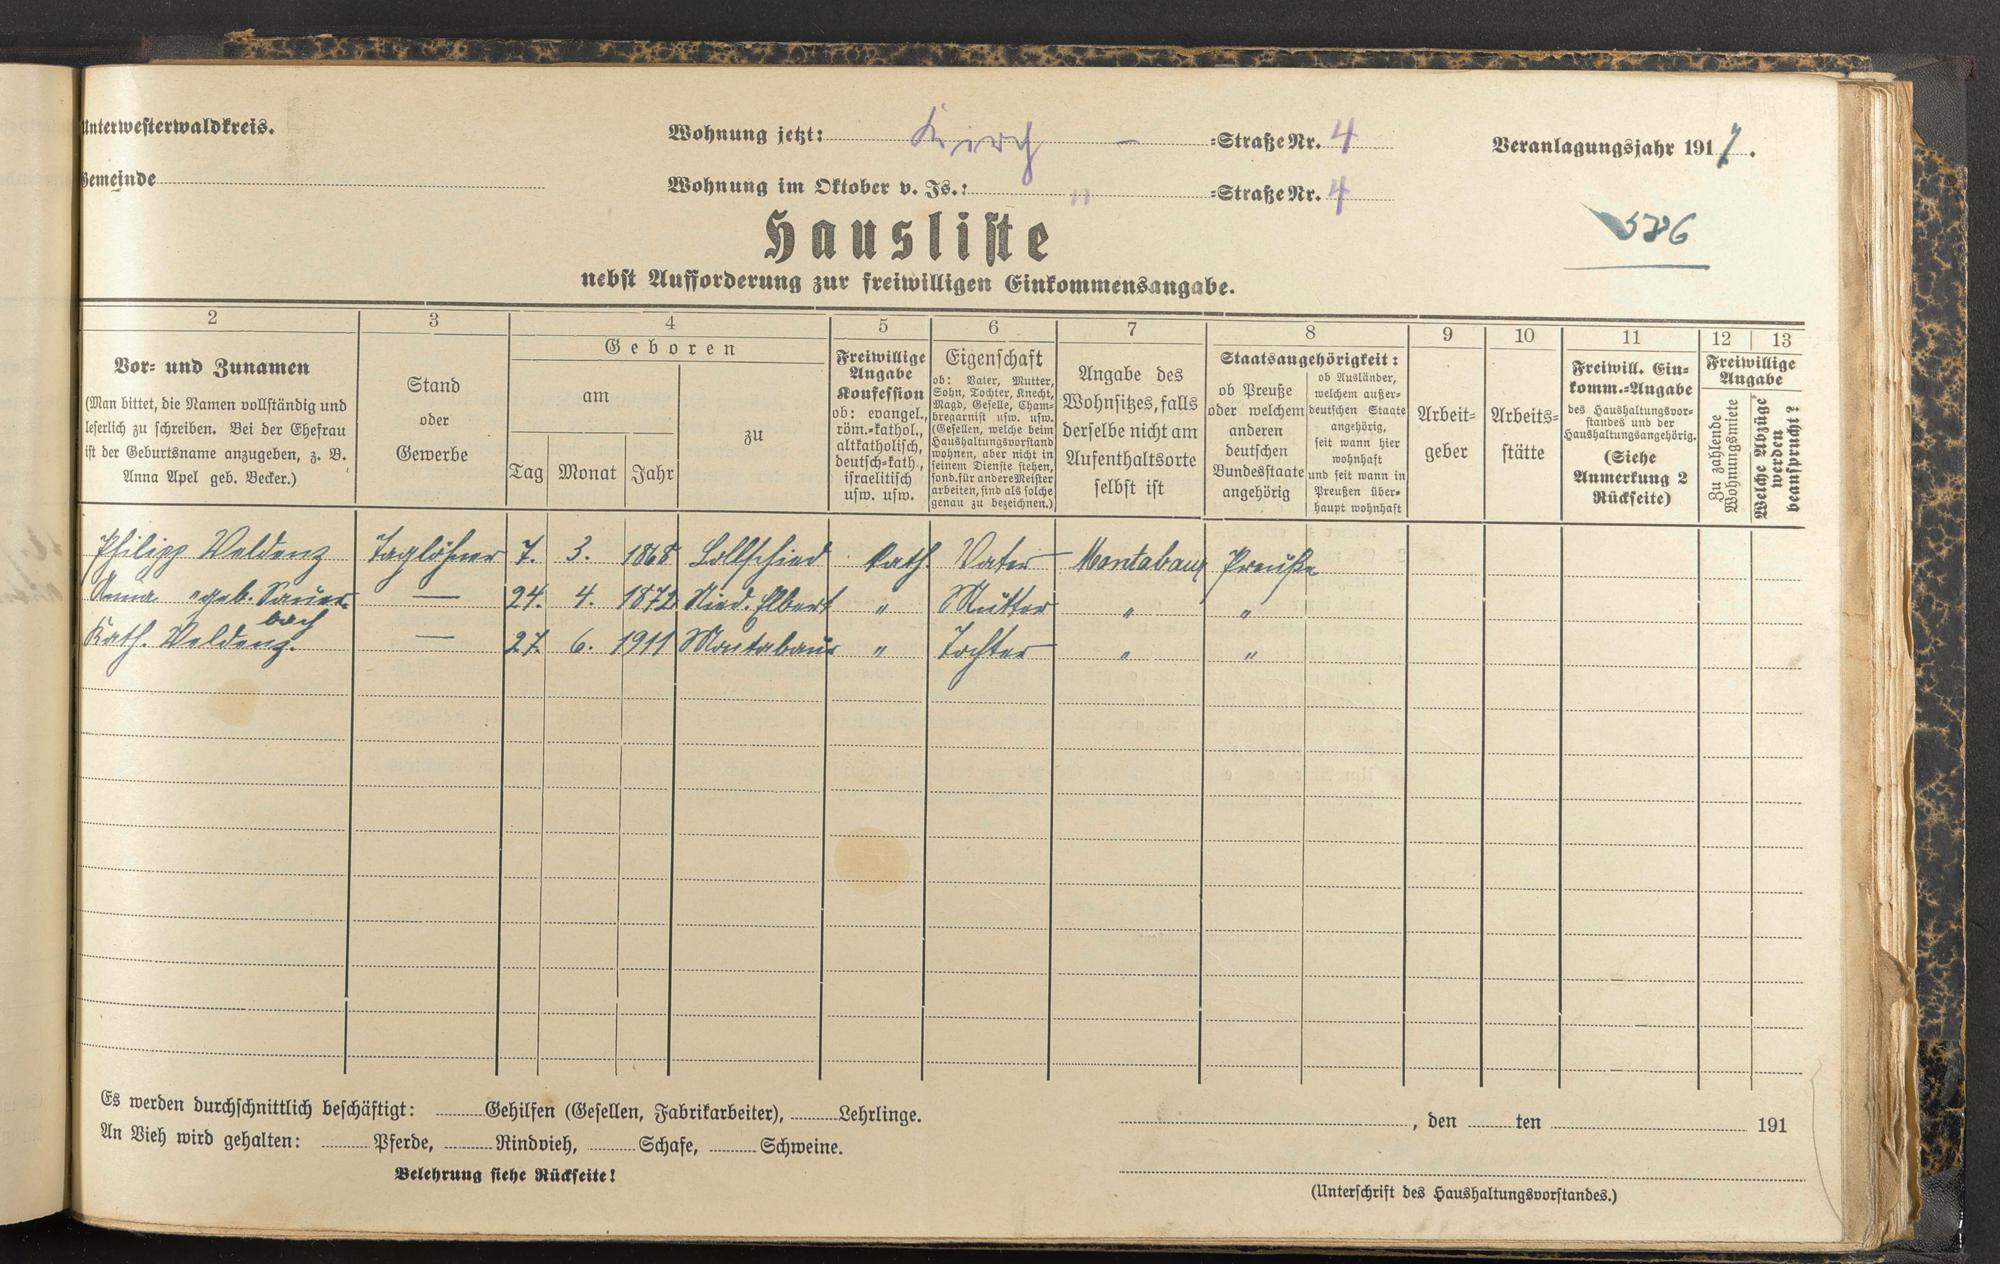 Unterwesterwaldkreis.
Wohnung jetzt: Kirch - =Straße Nr. 4
Veranlagungsjahr 1917.
Gemeinde
Wohnung im Oktober v. Js.: " =Straße Nr. 4
Hausliste
nebst Aufforderung zur freiwilligen Einkommensangabe.
2 3 4 5 6 7 8 9 10 11 12 13
Vor- und Zunamen
(Man bittet, die Namen vollständig und
leserlich zu schreiben. Bei der Ehefrau
ist der Geburtsname anzugeben, z. B.
Anna Apel geb. Becker.)
Stand
oder
Gewerbe
Geboren
am
Tag Monat Jahr
zu
Freiwillige
Angabe
Konfession
ob: evangel.,
röm.-kathol.,
altkatholisch,
deutsch-kath.,
israelitisch
usw. usw.
Eigenschaft
ob: Vater, Mutter,
Sohn, Tochter, Knecht,
Magd, Geselle, Cham-
bregarnist usw. usw.
(Gesellen, welche beim
Haushaltungsvorstand
wohnen, aber nicht in
seinem Dienste stehen,
sond. für andere Meister
arbeiten, sind als solche
genau zu bezeichnen.)
Angabe des
Wohnsitzes, falls
derselbe nicht am
Aufenthaltsorte
selbst ist
Staatsangehörigkeit:
ob Preuße
oder welchem
anderen
deutschen
Bundesstaate
angehörig
ob Ausländer,
welchem außer-
deutschen Staate
angehörig,
seit wann hier
wohnhaft
und seit wann in
Preußen über-
haupt wohnhaft
Arbeit-
geber
Arbeits-
stätte
Freiwill. Ein-
komm.-Angabe
des Haushaltungsvor-
standes und der
Haushaltungsangehörig.
(Siehe
Anmerkung 2
Rückseite)
Freiwillige
Angabe
Zu zahlende
Wohnungsmiete
Welche Abzüge
werden
beansprucht?
Philipp Weldenz Taglöhner 7. 3. 1868 Lollschied kath. Vater Montabaur Preuße
Anna " geb. Sauer- — 24. 4. 1872 Nied. Elbert " Mutter " "
bach
Kath. Weldenz. — 27. 6. 1911 Montabaur " Tochter " "
Es werden durchschnittlich beschäftigt: Gehilfen (Gesellen, Fabrikarbeiter), Lehrlinge.
An Vieh wird gehalten: Pferde, Rindvieh, Schafe, Schweine.
Belehrung siehe Rückseite!
, den ten 191
(Unterschrift des Haushaltungsvorstandes.)